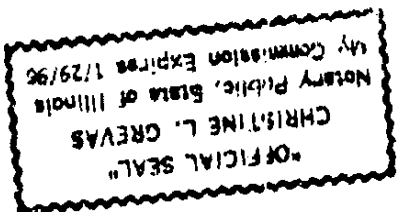 "OFFICIAL SEAL"
CHRISTINE L. GREVAS
Notary Public, State of Illinois
My Commission Expires 1/29/96